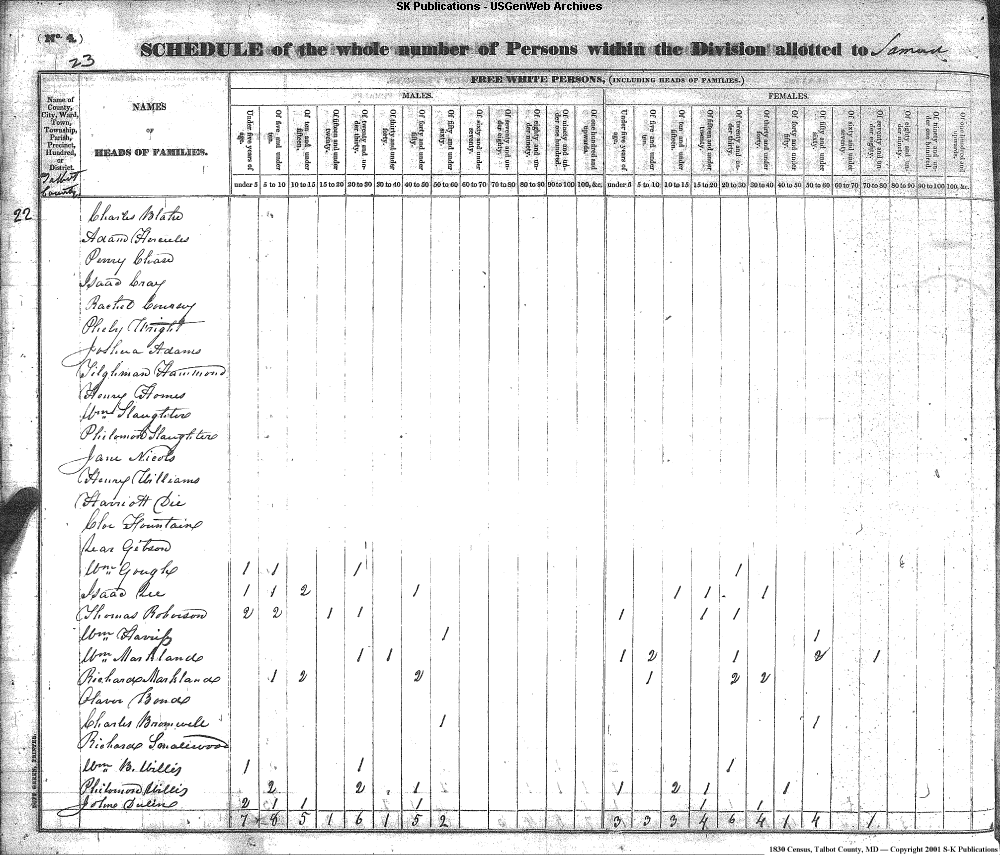 SK Publications - USGenWeb Archives
(No. 4.)
23
SCHEDULE of the whole number of Persons within the Division allotted to Samuel
FREE WHITE PERSONS, (INCLUDING HEADS OF FAMILIES.)
MALES. FEMALES.
Name of County, City, Ward, Town, Township, Parish, Precinct, Hundred, or District.
NAMES
OF
HEADS OF FAMILIES.
Talbot County
Under five years of age.
Of five and under ten.
Of ten and under fifteen.
Of fifteen and under twenty.
Of twenty and under thirty.
Of thirty and under forty.
Of forty and under fifty.
Of fifty and under sixty.
Of sixty and under seventy.
Of seventy and under eighty.
Of eighty and under ninety.
Of ninety and under one hundred.
Of one hundred and upwards.
Under five years of age.
Of five and under ten.
Of ten and under fifteen.
Of fifteen and under twenty.
Of twenty and under thirty.
Of thirty and under forty.
Of forty and under fifty.
Of fifty and under sixty.
Of sixty and under seventy.
Of seventy and under eighty.
Of eighty and under ninety.
Of ninety and under one hundred.
Of one hundred and upwards.
under 5 5 to 10 10 to 15 15 to 20 20 to 30 30 to 40 40 to 50 50 to 60 60 to 70 70 to 80 80 to 90 90 to 100 100, &c. under 5 5 to 10 10 to 15 15 to 20 20 to 30 30 to 40 40 to 50 50 to 60 60 to 70 70 to 80 80 to 90 90 to 100 100, &c.
22 Charles Blake
Adam Hercules
Perry Chase
Isaac Gray
Rachel Coursey
Pheby Wright
Joshua Adams
Tilghman Hammond
Henry Homes
Wm Slaughter
Philomon Slaughter
Jane Nicols
Henry Williams
Harriott Die
Cloe Fountain
Lear Gibson
Wm Gough 1 1 1 1
Isaac Lee 1 1 2 1 1 1 1
Thomas Roberson 2 2 1 1 1 1 1
Wm Harriss 1 1
Wm Markland 1 1 1 2 1 2 1
Richard Markland 1 2 2 1 2 2
Bond
Charles Bromwell 1 1
Richard Smallwood
Wm B. Willis 1 1 1
Philomon Willis 2 2 1 1 2 1 1
John 2 1 1 1 1 1
7 8 5 1 6 1 5 2 3 3 3 4 6 4 1 4 1
DUFF GREEN, PRINTER.
1830 Census, Talbot County, MD — Copyright 2001 S-K Publications